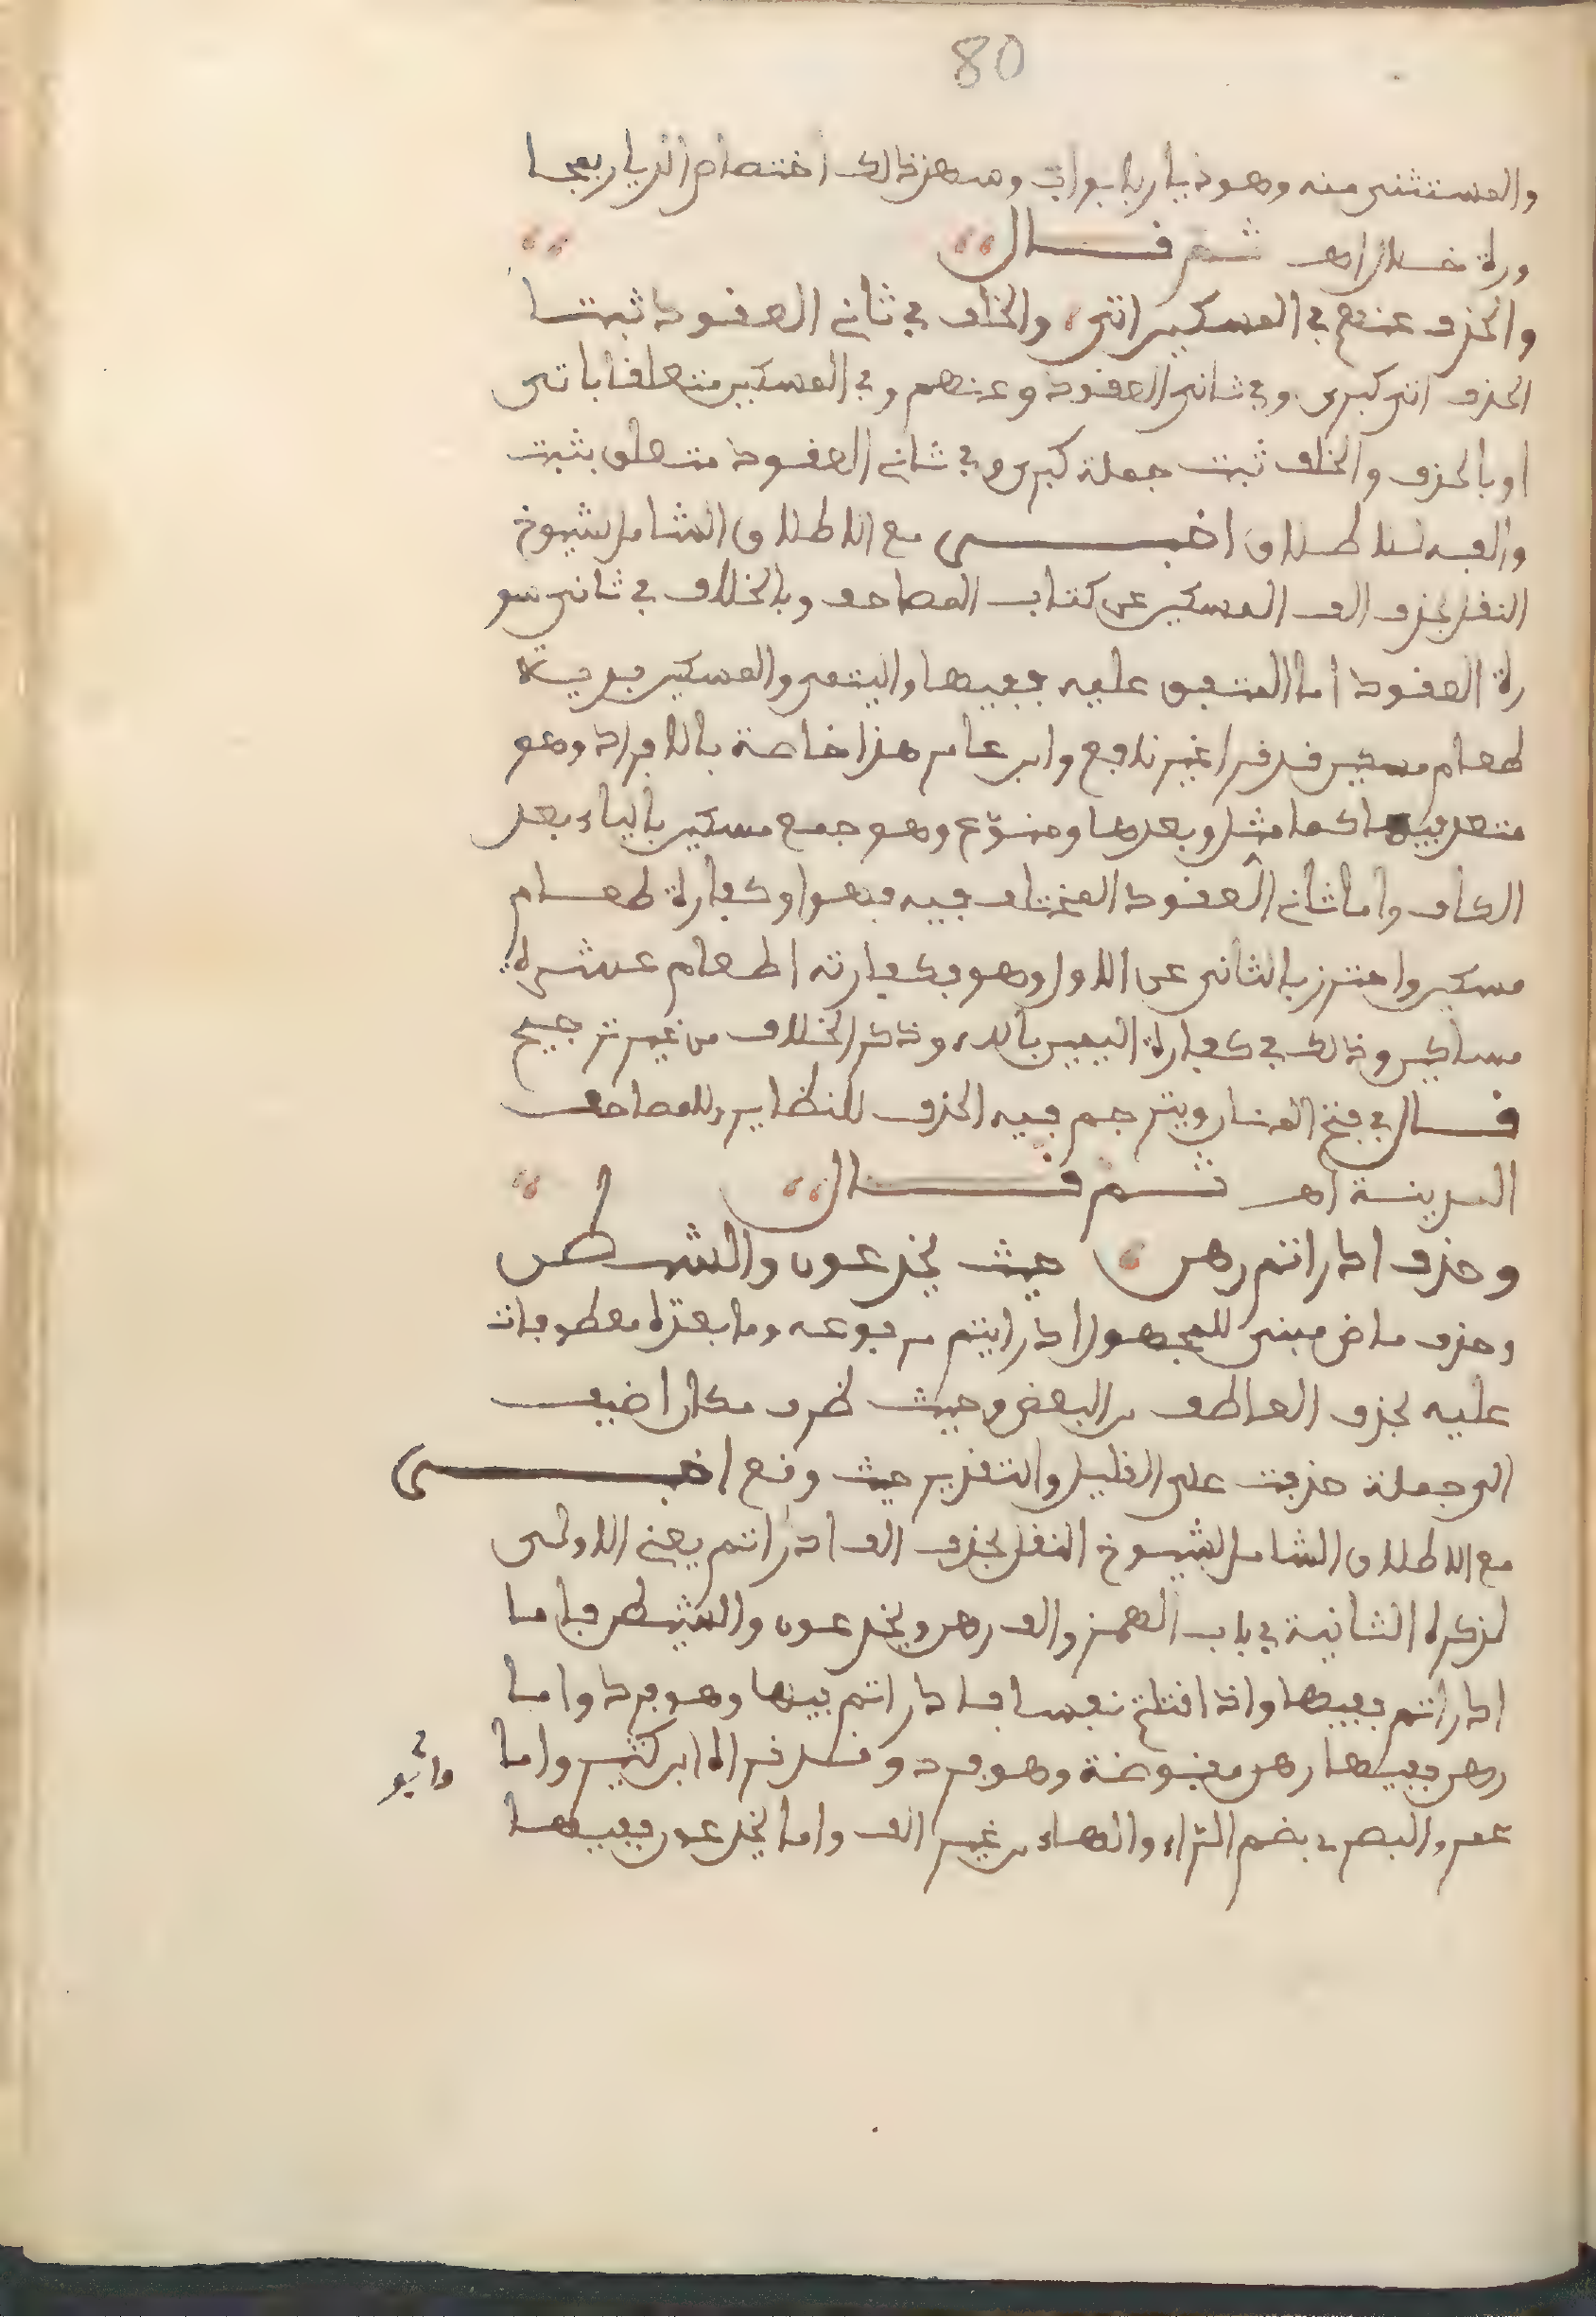 80
والمستثنى منه وهو ديار بابواب وسهل ذالك اختصاص الديار بعجا
ورة خلال اهـ ثم قال
والحذف عنهم في المسكين اتى والخلف في ثاني العقود ثبتا
الحذف اتى كبرى وفي ثاني العقود وعنهم وفي المسكين متعلقا باتى
او بالحذف والخلف ثبت جملة كبرى وفي ثاني العقود متعلق بثبت
والفه للاطلاق اخبر مع الاطلاق الشامل لشيوخ
النقل بحذف الف المسكين عن كتاب المصاحف وبالخلاف في ثاني سو
رة العقود اما المتفق عليه ففيها واليتمى والمسكين فدية
طعام مسكين قد قرا غير نافع وابن عامر هذا خاصة بالافراد وهو
متعدد فيها كما مثل وبعدها ومنوع وهو جمع مسكين بالياء بعد
الكاف واما ثاني العقود المختلف فيه فهو او كفارة طعام
مسكين واحترز بالثاني عن الاول وهو فكفارته اطعام عشرة
مساكين وذالك في كفارة اليمين بالله وذكر الخلاف من غير ترجيح
قال في فتح المنان ويترجح فيه الحذف للنظاير وللمصاحف
المدينة اهـ ثم قال
وحذف ادارأتم رهن حيث يخدعون والشيطن
وحذف ماض مبني للمجهول ادارايتم مرفوعه وما بعده معطوفات
عليه بحذف العاطف من البعض وحيث ظرف مكان اضيف
الى جملة حذفت على القليل والتقدير حيث وقع اخبر
مع الاطلاق الشامل لشيوخ النقل بحذف الف ادارأتم يعني الاولى
لذكره الثانية في باب الهمز والف رهن ويخدعون والشيطن فاما
ادارأتم ففيها واذ اقتلتم نفسا فادارأتم فيها وهو فرد واما
رهن ففيها رهن مقبوضة وهو فرد وقد قراه ابن كثير واما
وابو
عمرو البصري بضم الراء والهاء من غير الف واما يخدعون ففيها